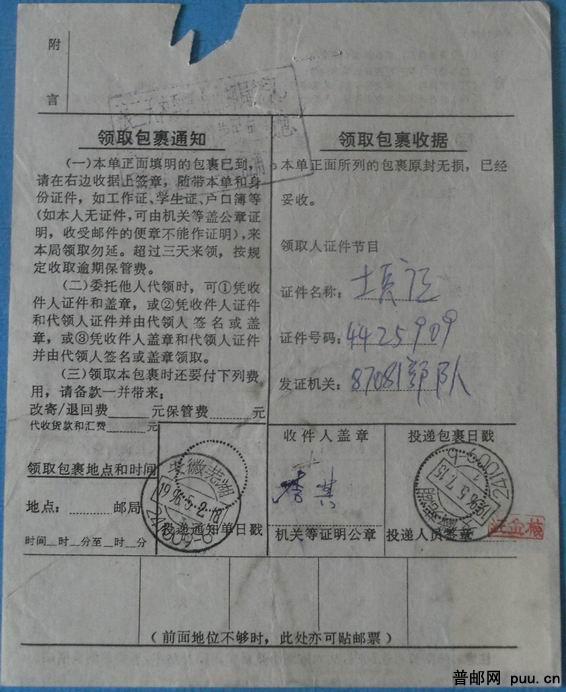 附
言
领取包裹通知
(一)本单正面填明的包裹已到,
请在右边收据上签章,随带本单和身
份证件,如工作证、学生证、户口簿等
(如本人无证件,可由机关等盖公章证
明,收受邮件的便章不能作证明),来
本局领取勿延。超过三天来领,按规
定收取逾期保管费。
(二)委托他人代领时,可①凭收
件人证件和盖章,或②凭收件人证件
和代领人证件并由代领人签名或盖
章,或③凭收件人便章和代领人证件
并由代领人签名或盖章领取。
(三)领取本包裹时还要付下列费
用,请备款一并带来:
改寄/退回费____元保管费____元
代收货款和汇费____元
领取包裹地点和时间
地点:........邮局
时间__时__分至__时__分
领取包裹收据
本单正面所列的包裹原封无损,已经
妥收。
领取人证件节目
证件名称:士兵证
证件号码:4425909
发证机关:87081部队
安徽芜湖
1996.5.2.18
投递通知单日戳
收件人盖章
李其
机关等证明公章
投递包裹日戳
241000
投递人员签章
(前面地位不够时,此处亦可贴邮票)
普邮网 puu.cn